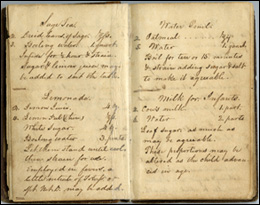 Sage Tea.
Dried leaves of Sage ℥ss.
Boiling water 1 quart.
Infuse for ½ hour & strain
Sugar & lemon juice may
be added to suit the taste.
Lemonade.
Lemon Juice 4
White Sugar 4
Boiling water 3 pints
Let them stand until cool
then strain for use.
Employed in fevers, a
may be added.
Water Gruel
Oatmeal
Water 1 quart
Boil for ten or 15 minutes
& strain adding sugar & salt
to make it agreeable.
Milk for Infants.
Cow's milk 1 part.
Water 2 parts
Loaf Sugar as much as
may be agreeable.
These proportions may be
altered as the child advan-
ces in age.